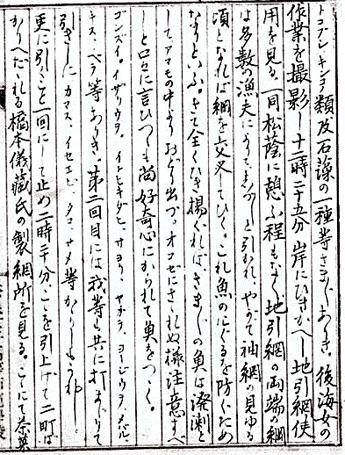 トコブシ、キンコ類及石藻の一種等さま〴〵あり き、後海女の
作業を撮影し十一時二十五分岸にひきかへし地引網使
用を見る。一同松蔭に憩ふ程もなく地引網の両端の綱
は多数の漁夫によりて引かれ、やがて袖網見ゆる
頃となれば綱を交叉してひく。これ魚のにぐるを防ぐため
なりといふ。さて全くひき揚ぐればさま〴〵の魚は溌溂と
して、アマモの中よりおどり出づ。オコゼにさゝれぬ様注意すべ
しと口々に言ひつゝも尚好奇心にかられて魚をつゝく。
ゴンズイ。イザリウヲ。イトヒキダヒ、サヨリ、ヤガラ、ヨージウヲ、メバル、
キス、ベラ等ありき。第二回目には我等も共に打まじりて
引きしにカマス、イセエビ、タコ、サメ等かゝりしもうれし。
更に引くこと一回にして止め一時二十分、こゝを引上げて二町ば
かりへだゝれる橋本儀蔵氏の製網所を見る。こゝにて茶菓